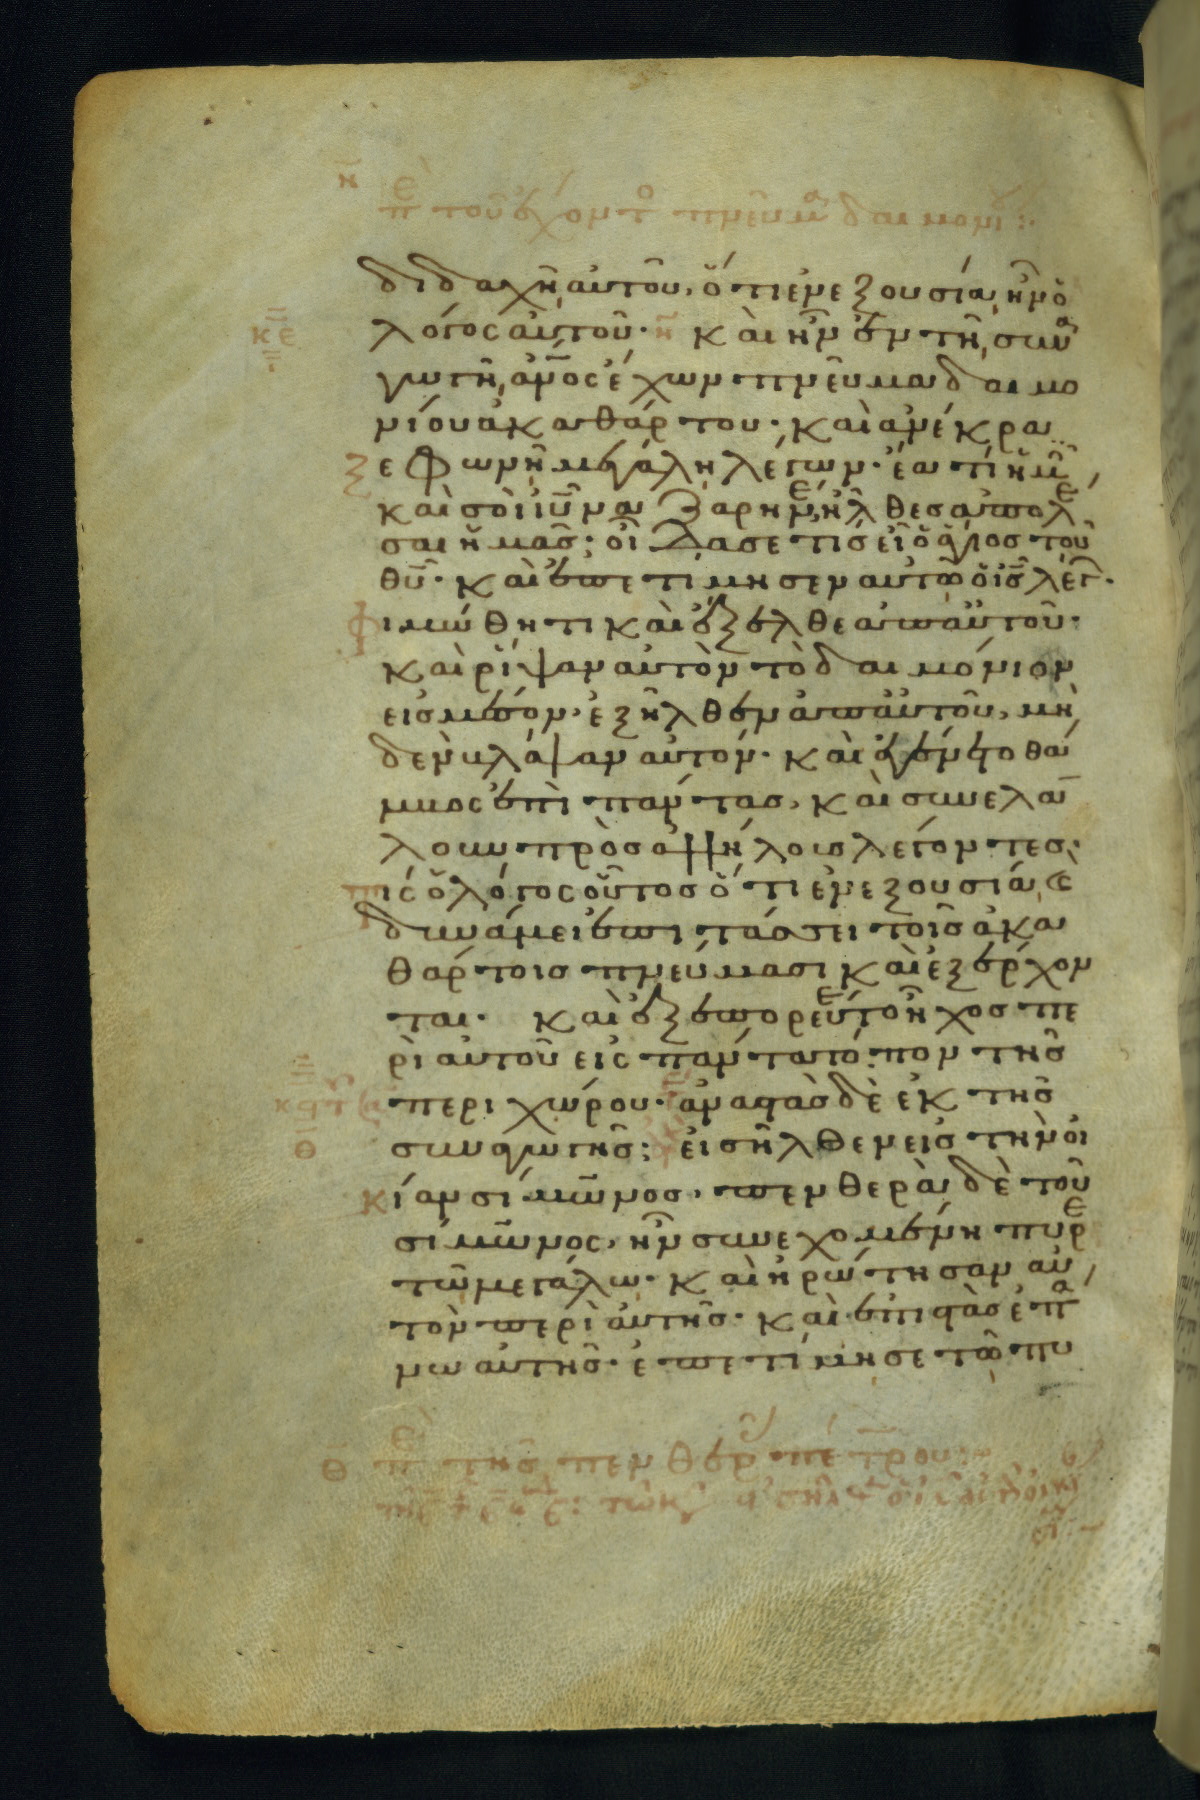 η̄ πε τοῦ ἔχοντο πνεῦμα δαιμονίου:·
διδαχῆ αὐτοῦ, ὅτι ἐν ἐξουσία ἦν ὁ
κε λόγος αὐτοῦ· η̄ καὶ ἦν ἐν τῆ συνα
γωγῆ ἄνος ἔχων πνεῦμα δαιμο
νίου ἀκαθάρτου· καὶ ἀνέκρα
ξε φωνῆ μεγάλη λέγων· ἔα τί ἡμῖ
καὶ σοὶ ιῦ ναζαρηνέ, ἦλθες ἀπολέ
σαι ἡμᾶς; οἶδα σὲ τίς εἶ ὁ ἅγιος τοῦ
θῦ· καὶ ἐπετίμησεν αὐτῶ ὁ ις λέγ·
φιμώθητι καὶ ἔξελθε ἀπ αὐτοῦ·
καὶ ρίψαν αὐτὸν τὸ δαιμόνιον
εἰς μέσον· ἐξῆλθεν ἀπ αὐτοῦ, μη
δὲν βλάψαν αὐτόν· καὶ ἐγένετο θάμ
βος ἐπὶ πάντας, καὶ συνελά
λουν πρὸς ἀλλήλους λέγοντες·
τίς ὁ λόγος οὗτος ὅτι ἐν ἐξουσία καὶ
δυνάμει ἐπιτάσσει τοῖς ἀκα
θάρτοις πνεύμασι καὶ ἐξέρχον
ται· καὶ ἐξεπορεύετο ἦχος πε
ρὶ αὐτοῦ εἰς πάντα τόπον τῆς
περιχώρου· ἀναστὰς δὲ ἐκ τῆς
θ̄ συναγωγῆς; εἰσῆλθεν εἰς τὴν οἰ
κίαν σίμωνος, πενθερὰ δὲ τοῦ
σίμωνος, ἦν συνεχομένη πυρε
τῶ μεγάλω· καὶ ἠρώτησαν αὐ
τὸν περὶ αὐτῆς· καὶ ἐπιστὰς ἐπά
νω αὐτῆς· ἐπετίμησε τῶ πυ
θ̄ πε τῆς πενθερ πέτρου: